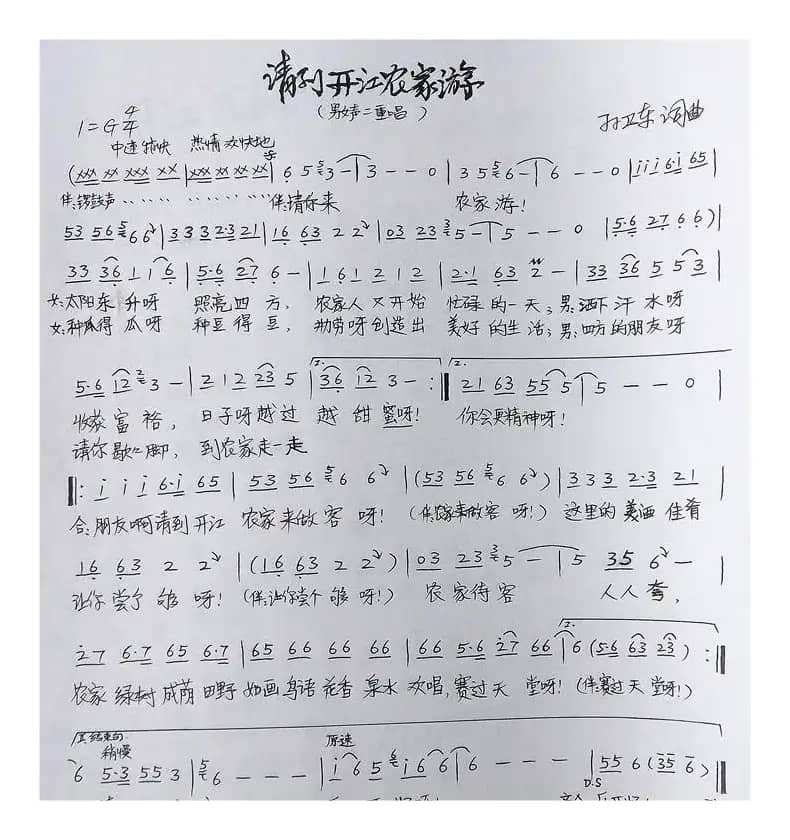 请到开江农家游
(男女声二重唱)
1=G 4/4
孙卫东词曲
中速稍快 热情欢快地
(xxx xx xxx xx | xxx xx xxx xx | 6 5 3 — | 3 — — 0 | 3 5 6 — | 6 — — 0 | i i i 6·i 65
伴:锣鼓声 伴:请你来 农家游!
53 56 6 6 | 333 2·3 21 | 16 63 2 2 | 03 23 5 — | 5 — — 0 | 5·6 27 6 6) |
33 36 1 1 6 | 5·6 27 6 — | 1 6 1 2 1 2 | 2·1 63 2 — | 33 36 5 5 3 |
女:太阳东升呀 照亮四方, 农家人又开始 忙碌的一天; 男:洒下汗水呀
女:种瓜得瓜呀 种豆得豆, 勤劳呀创造出 美好的生活; 男:四方的朋友呀
5·6 12 3 — | 2 1 2 23 5 | 36 12 3 — :‖ 21 63 55 5 | 5 — — 0 |
收获富裕, 日子呀越过 越甜蜜呀! 你会更精神呀!
请你歇歇脚, 到农家走一走
‖: i i i 6·i 65 | 53 56 6 6 | (53 56 6 6) | 333 2·3 21 |
合:朋友啊请到开江 农家来做客呀! (伴:农家来做客呀!) 这里的美酒佳肴
16 63 2 2 | (16 63 2 2) | 03 23 5 — | 5 35 6 — |
让你尝个够呀! (伴:让你尝个够呀!) 农家待客 人人夸,
27 6·7 65 6·7 | 65 66 66 66 | 66 5·6 27 66 | 6 (5·6 63 23) :‖
农家绿树成荫田野如画鸟语花香泉水欢唱,赛过天堂呀!(伴:赛过天堂呀!)
结束句
稍慢 原速
6 5·3 55 3 | 6 — — — | i 6 5 i 6 6 | 6 — — — | 55 6 (35 6) ‖
D.S